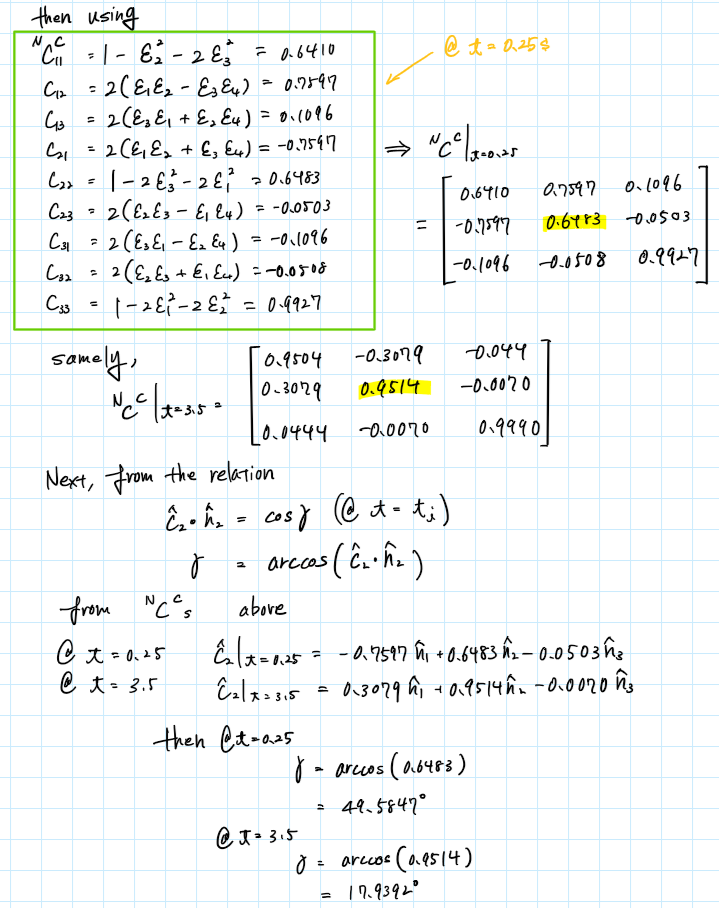 then using
ᴺC₁₁ᶜ = 1 - ε₂² - 2ε₃² = 0.6410
@ t = 0.25s
C₁₂ = 2(ε₁ε₂ - ε₃ε₄) = 0.7597
C₁₃ = 2(ε₃ε₁ + ε₂ε₄) = 0.1096
C₂₁ = 2(ε₁ε₂ + ε₃ε₄) = -0.7597
⇒ ᴺCᶜ|t=0.25
C₂₂ = 1 - 2ε₃² - 2ε₁² = 0.6483
C₂₃ = 2(ε₂ε₃ - ε₁ε₄) = -0.0503
C₃₁ = 2(ε₃ε₁ - ε₂ε₄) = -0.1096
C₃₂ = 2(ε₂ε₃ + ε₁ε₄) = -0.0508
C₃₃ = 1 - 2ε₁² - 2ε₂² = 0.9927
= [0.6410 0.7597 0.1096
-0.7597 0.6483 -0.0503
-0.1096 -0.0508 0.9927]
samely,
ᴺCᶜ|t=3.5 =
[0.9504 -0.3079 -0.044
0.3079 0.9514 -0.0070
0.0444 -0.0070 0.9990]
Next, from the relation
ĉ₂ · n̂₂ = cos γ (@ t = tᵢ)
γ = arccos(ĉ₂ · n̂₂)
from ᴺCᶜs above
@ t = 0.25 ĉ₂|t=0.25 = -0.7597 n̂₁ + 0.6483 n̂₂ - 0.0503 n̂₃
@ t = 3.5 ĉ₂|t=3.5 = 0.3079 n̂₁ + 0.9514 n̂₂ - 0.0070 n̂₃
then @t=0.25
γ = arccos(0.6483)
= 49.5847°
@ t = 3.5
γ = arccos(0.9514)
= 17.9392°